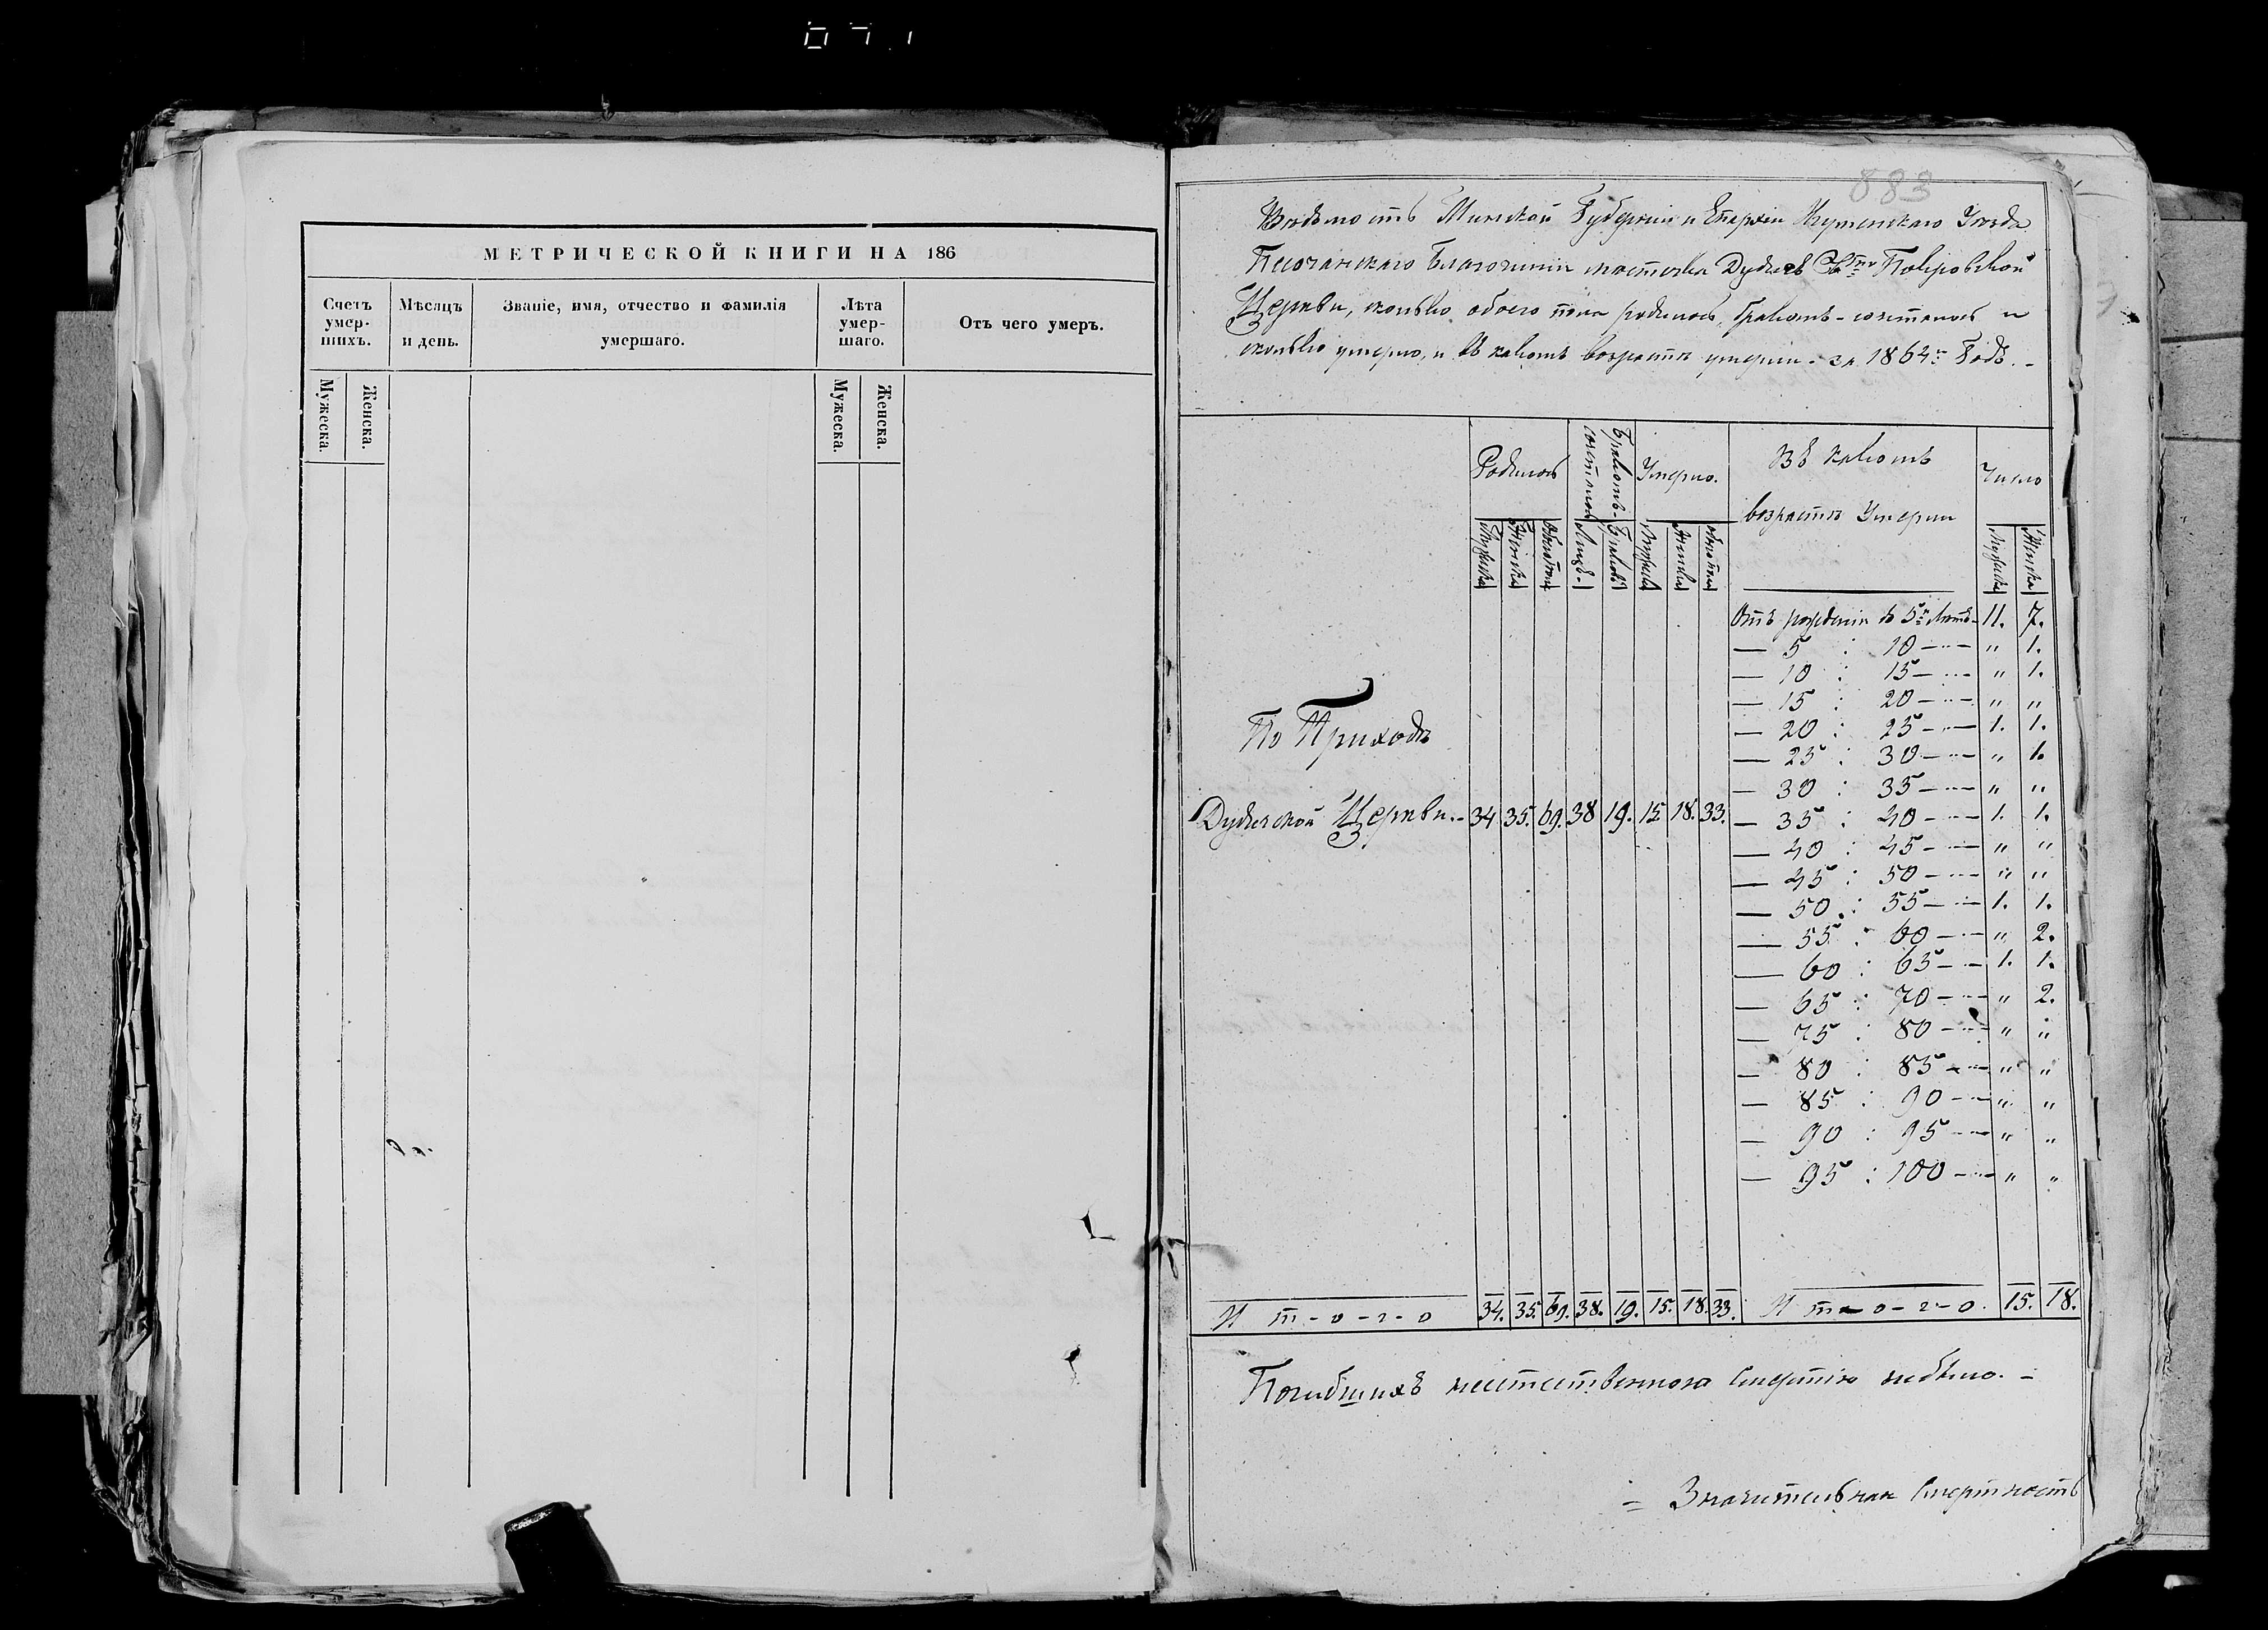 071
МЕТРИЧЕСКОЙ КНИГИ НА 186
Счетъ умер-шихъ.
Мѣсяцъ и день.
Званіе, имя, отчество и фамилія умершаго.
Лѣта умер-шаго.
Отъ чего умеръ.
Мужеска.
Женска.
Мужеска.
Женска.
883
Вѣдомость Минской Губерніи и Епархіи Игуменскаго Уѣзда
Песочанскаго Благочинія мѣстечка Дудичъ Покровской
Церкви, сколько обоего пола родилось, бракомъ-сочеталось и
сколько умерло, и въ какомъ возрастѣ умерли - за 1864й Годъ. -
Родилось
Бракомъ-сочеталось
Умерло.
Въ какомъ
возрастѣ Умерли
Число
Мужеска
Женска
Обоего пола
Лицъ-
Браковъ
Мужеска
Женска
обоего пола
Мужеска
Женска
Отъ рожденія до 5и Лѣтъ- 11. 7.
— 5 : 10 - „ - „ 1.
— 10 : 15 - „ - „ 1.
— 15 : 20 - „ - „ „
— 20 : 25 - „ - 1. 1.
По Приходѣ
— 25 : 30 - „ - „ 1.
— 30 : 35 - „ - „ „
Дудичской Церкви.- 34 35. 69. 38 19. 15 18. 33.
— 35 : 40 - „ - 1. 1.
— 40 : 45 - „ - „ „
— 45 : 50 - „ - „ „
— 50 : 55 - „ - 1. 1.
— 55 : 60 - „ - „ 2.
— 60 : 65 - - 1. 1.
— 65 : 70 - „ - „ 2.
— 75 : 80 - „ - „ „
— 80 : 85 - „ - „ „
— 85 : 90 - „ - „ „
— 90 : 95 - „ - „ „
— 95 : 100 - „ - „ „
И т-о-г-о 34. 35. 69. 38. 19. 15. 18. 33. И т-о-г-о. 15. 18.
Погибшихъ неестественною смертію небыло. -
= Значительная смертность